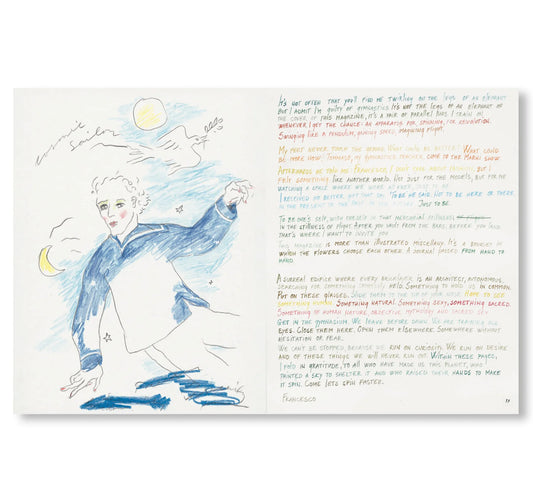 cosmic
sailor
It's not often that you'll find me twirling on the legs of an elephant
But I admit I'm guilty of gymnastics. It's not the legs of an elephant on
the cover of this magazine, it's a pair of parallel bars I train on
whenever I get the chance. An apparatus for spinning, for revolution.
Swinging like a pendulum, gaining speed, imagining flight.
My feet never touch the ground. What could be better? What could
be more now? Tommaso, my gymnastics teacher, came to the Marni show.
Afterwards he told me: Francesco, I don't know about fashion, but I
felt something like another world. Not just for the models, but for me
watching a space where we were
I received no better
in the present Just to be.
To be one's self, with oneself in that mercurial
in the stillness of flight after you vault from the bars, before you land
that's where I want to invite you
This magazine is more than illustrated miscellany. It's a bouquet in
which the flowers choose each other. A journal passed from hand to
hand.
A surreal edifice where every bricklayer is an architect, autonomous,
searching for something held. Something to hold us in common.
Put on these glasses. Slide them to the tip of your nose. Here to see
something human. Something natural. Something sexy, something sacred.
Something of human nature, objective mythology and sacred sex
Get in the gymnasium. We leave before dawn. We are training our
eyes. Close them here. Open them elsewhere. Somewhere without
hesitation or fear.
We can't be stopped, because we run on curiosity. We run on desire
and of these things we will never run out. Within these pages,
I fold in gratitude, to all who have made us this planet, who
painted a sky to shelter it and who raised their hands to make
it spin. Come lets spin faster.
Francesco